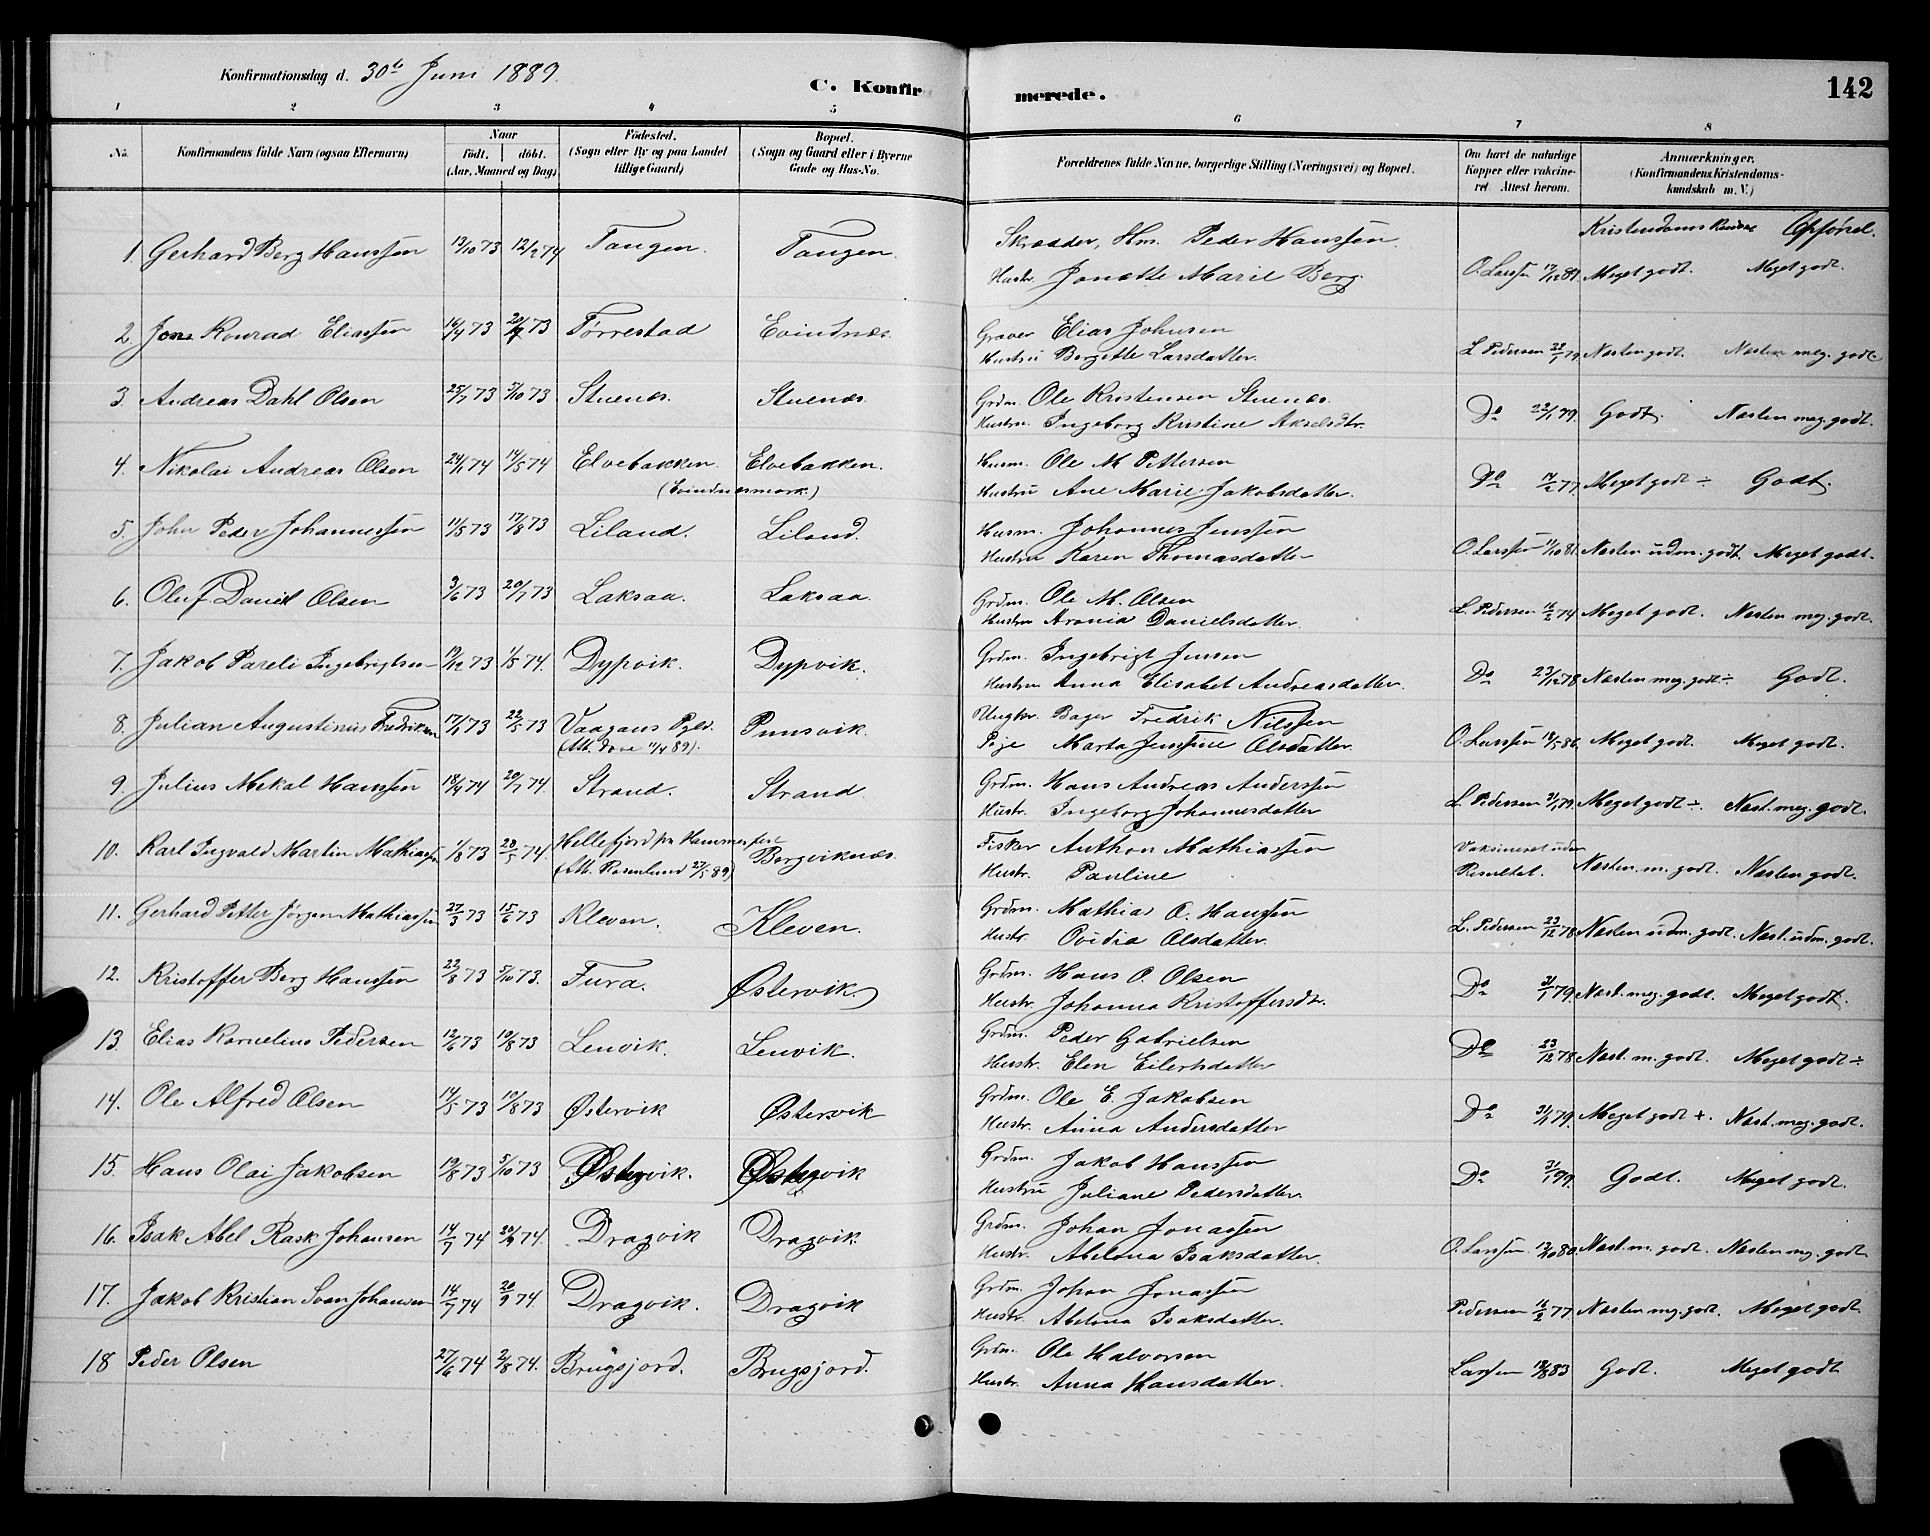 Konfirmationsdag d. 30te Juni 1889.
C. Konfirmerede.
142
1 2 3 4 5 6 7 8
No. Konfirmandens fulde Navn (ogsaa Efternavn) Naar födt. döbt. (Aar, Maaned og Dag) Födested. (Sogn eller By og paa Landet tillige Gaard) Bopæl. (Sogn og Gaard eller i Byerne Gade og Hus-No. Forældrenes fulde Navne, borgerlige Stilling (Næringsvei) og Bopæl. Om havt de naturlige Kopper eller vakcineret. Attest herom. Anmærkninger. (Konfirmandens Kristendomskundskab m. V.)
Kristendoms Opförsel.
1. Gerhard Berg Hanssen 13/10 73 12/2 74 Tangen. Tangen. Skrædder, Hm. Peder Hanssen
Hustr. Jonette Marie Berg. O. Larssen Meget godt. Meget godt.
2. Jens Konrad Eliassen 14/4 73 20/7 73 Tørrestad Evindnes. Graver Elias Johnsen
Hustru Bergitte Larsdatter. L. Pedersen 22/1 79 Næsten godt. Næsten meg. godt.
3. Andreas Dahl Olsen 25/7 73 5/10 73 Stuenes. Stuenes. Grdm. Ole Kristensen Stuenes.
Hustru. Ingeborg Kristine Akselsdtr. Do 22/1 79. Godt. Næsten meg. godt.
4. Nikolai Andreas Olsen 24/1 74 14/5 74 Elvebakken. Elvebakken. Husm. Ole M Pettersen
(Evindnesmark.) Hustru Ane Marie Jakobsdatter. Do 17/2 77. Meget godt ÷ Godt.
5. John Peder Johannessen 11/5 73 17/8 73 Liland. Liland. Husm. Johannes Jenssen
Hustru Karen Thomasdatter O. Larssen 11/10 81. Næsten udm. godt. Meget godt.
6. Oluf Daniel Olsen 3/6 73 20/7 73 Laksaa. Laksaa. Grdm. Ole M. Olsen
Hustru Aronia Danielsdatter. L. Pedersen 16/2 74 Meget godt. Næsten meg. godt.
7. Jakob Pareli Ingebrigtsen 19/12 73 1/5 74. Dypvik. Dypvik. Grdm. Ingebrigt Jensen
Hustru Anna Elisabet Andreasdatter. Do 23/12 78 Næsten meg. godt ÷ Godt.
8. Julian Augustinius Fredriksen 17/1 73 22/5 73 Vaagans Pgld. Punsvik. Ungkr. Bager Fredrik Nilssen
(Att. Dose 11/4 89). Pige Marta Jenssine Olsdatter. O. Larssen 18/5 86. Meget godt. Meget godt.
9. Julius Mekal Hanssen 18/4 74 20/7 74. Strand. Strand Grdm. Hans Andreas Anderssen
Hustr. Ingeborg Johannesdatter L. Pedersen 31/1 79. Meget godt ÷. Næst. meg. godt.
10. Karl Ingvald Martin Mathiassen 1/8 73 28/5 74. Hellefjord pr. Hammerfest Bergviknes. Fisker Anthon Mathiassen
(Att. Rosenlund 27/5 89) Hustr. Pauline Vaksineret uden Resultat. Næsten. m. godt. Næsten godt.
11. Gerhard Petter Jörgen Mathiassen 27/3 73 15/6 73 Kleven. Kleven. Grdm. Mathias A. Hanssen
Hustr. Ovidia Olsdatter. L. Pedersen 23/12 78 Næsten udm. godt. Næst. udm. godt.
12. Kristoffer Berg Hanssen 22/8 73 5/10 73. Fura. Østervik. Grdm. Hans O. Olsen
Hustr. Johanna Kristoffersdtr. Do 31/1 79 Næst. meg. godt. Meget godt.
13. Elias Kornelius Pedersen 12/6 73 10/8 73 Lenvik. Lenvik. Grdm. Peder Gabrielsen
Hustr. Elen Eilertsdatter Do 23/12 78 Næst. m. godt. Meget godt ÷
14. Ole Alfred Olsen 14/5 73 10/8 73 Østervik Østervik Grdm. Ole E. Jakobsen
Hustr. Anna Andersdatter Do 31/1 79. Meget godt +. Næst. meg. godt.
15. Hans Olai Jakobsen 19/8 73 5/10 73 Østervik. Østervik Grdm. Jakob Hanssen
Hustru Juliane Pedersdatter. Do 31/1 79. Godt. Meget godt.
16. Isak Abel Rask Johansen 14/7 74 20/9 74. Dragvik Dragvik. Grdm. Johan Jonassen
Hustr. Abelona Isaksdatter. O. Larssen. 13/10 80. Næst. m. godt. Næsten mg. godt
17. Jakob Kristian Svan Johansen 14/7 74 20/9 74. Dragvik. Dragvik Grdm. Johan Jonassen
Hustr. Abelona Isaksdatter. Pedersen 16/2 77 Næsten mg. godt. Meget godt.
18 Peder Olsen 27/6 74 2/8 74. Brugsjord. Brugsjord. Grdm. Ole Halvorsen
Hustr. Anna Hansdatter. Larssen 18/8 83 Godt. Meget godt